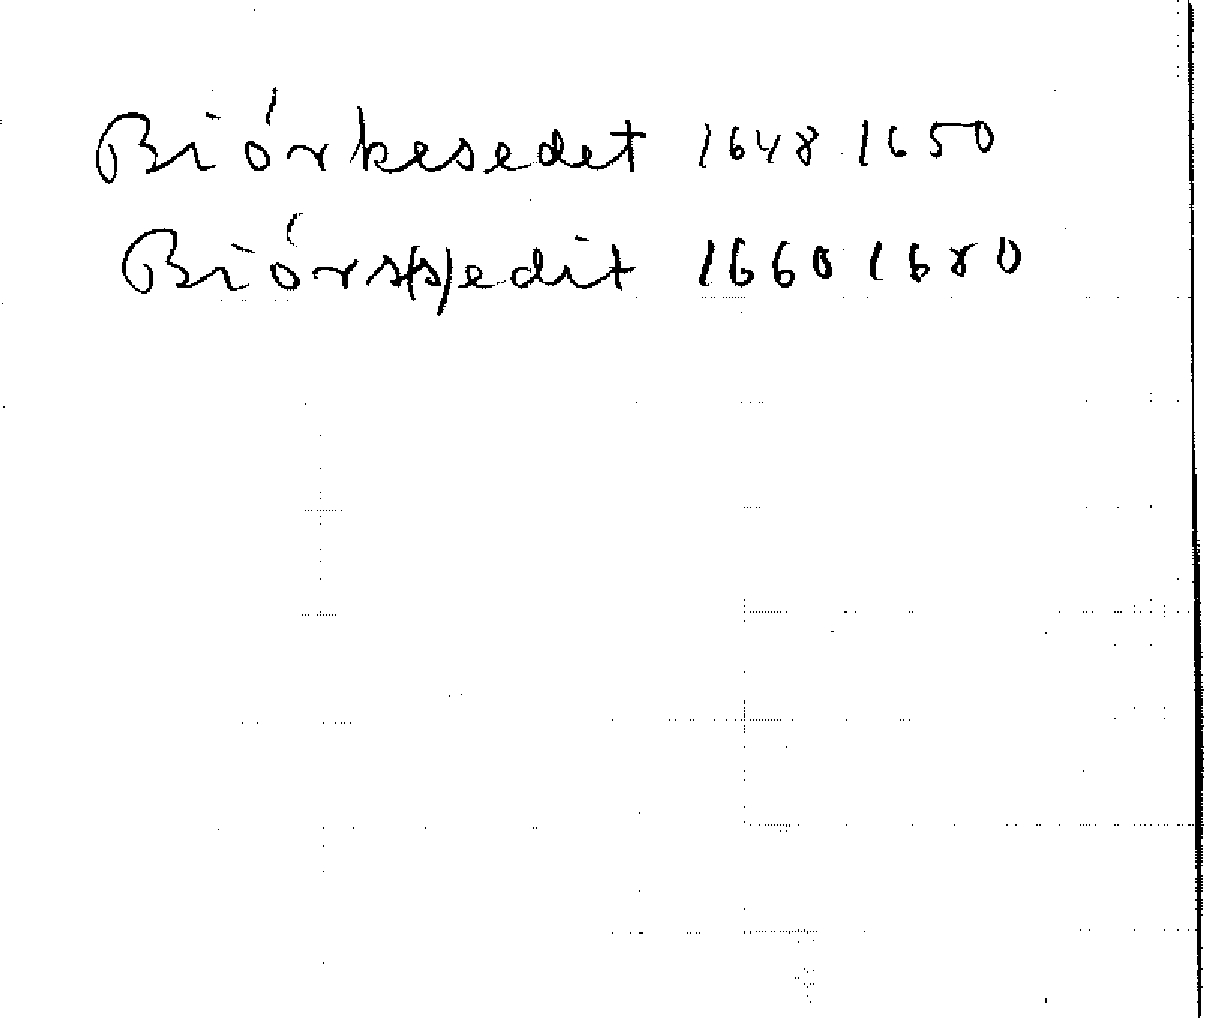 Biórkesedet 1648 1650
Biórs(s)edit 1660 1680